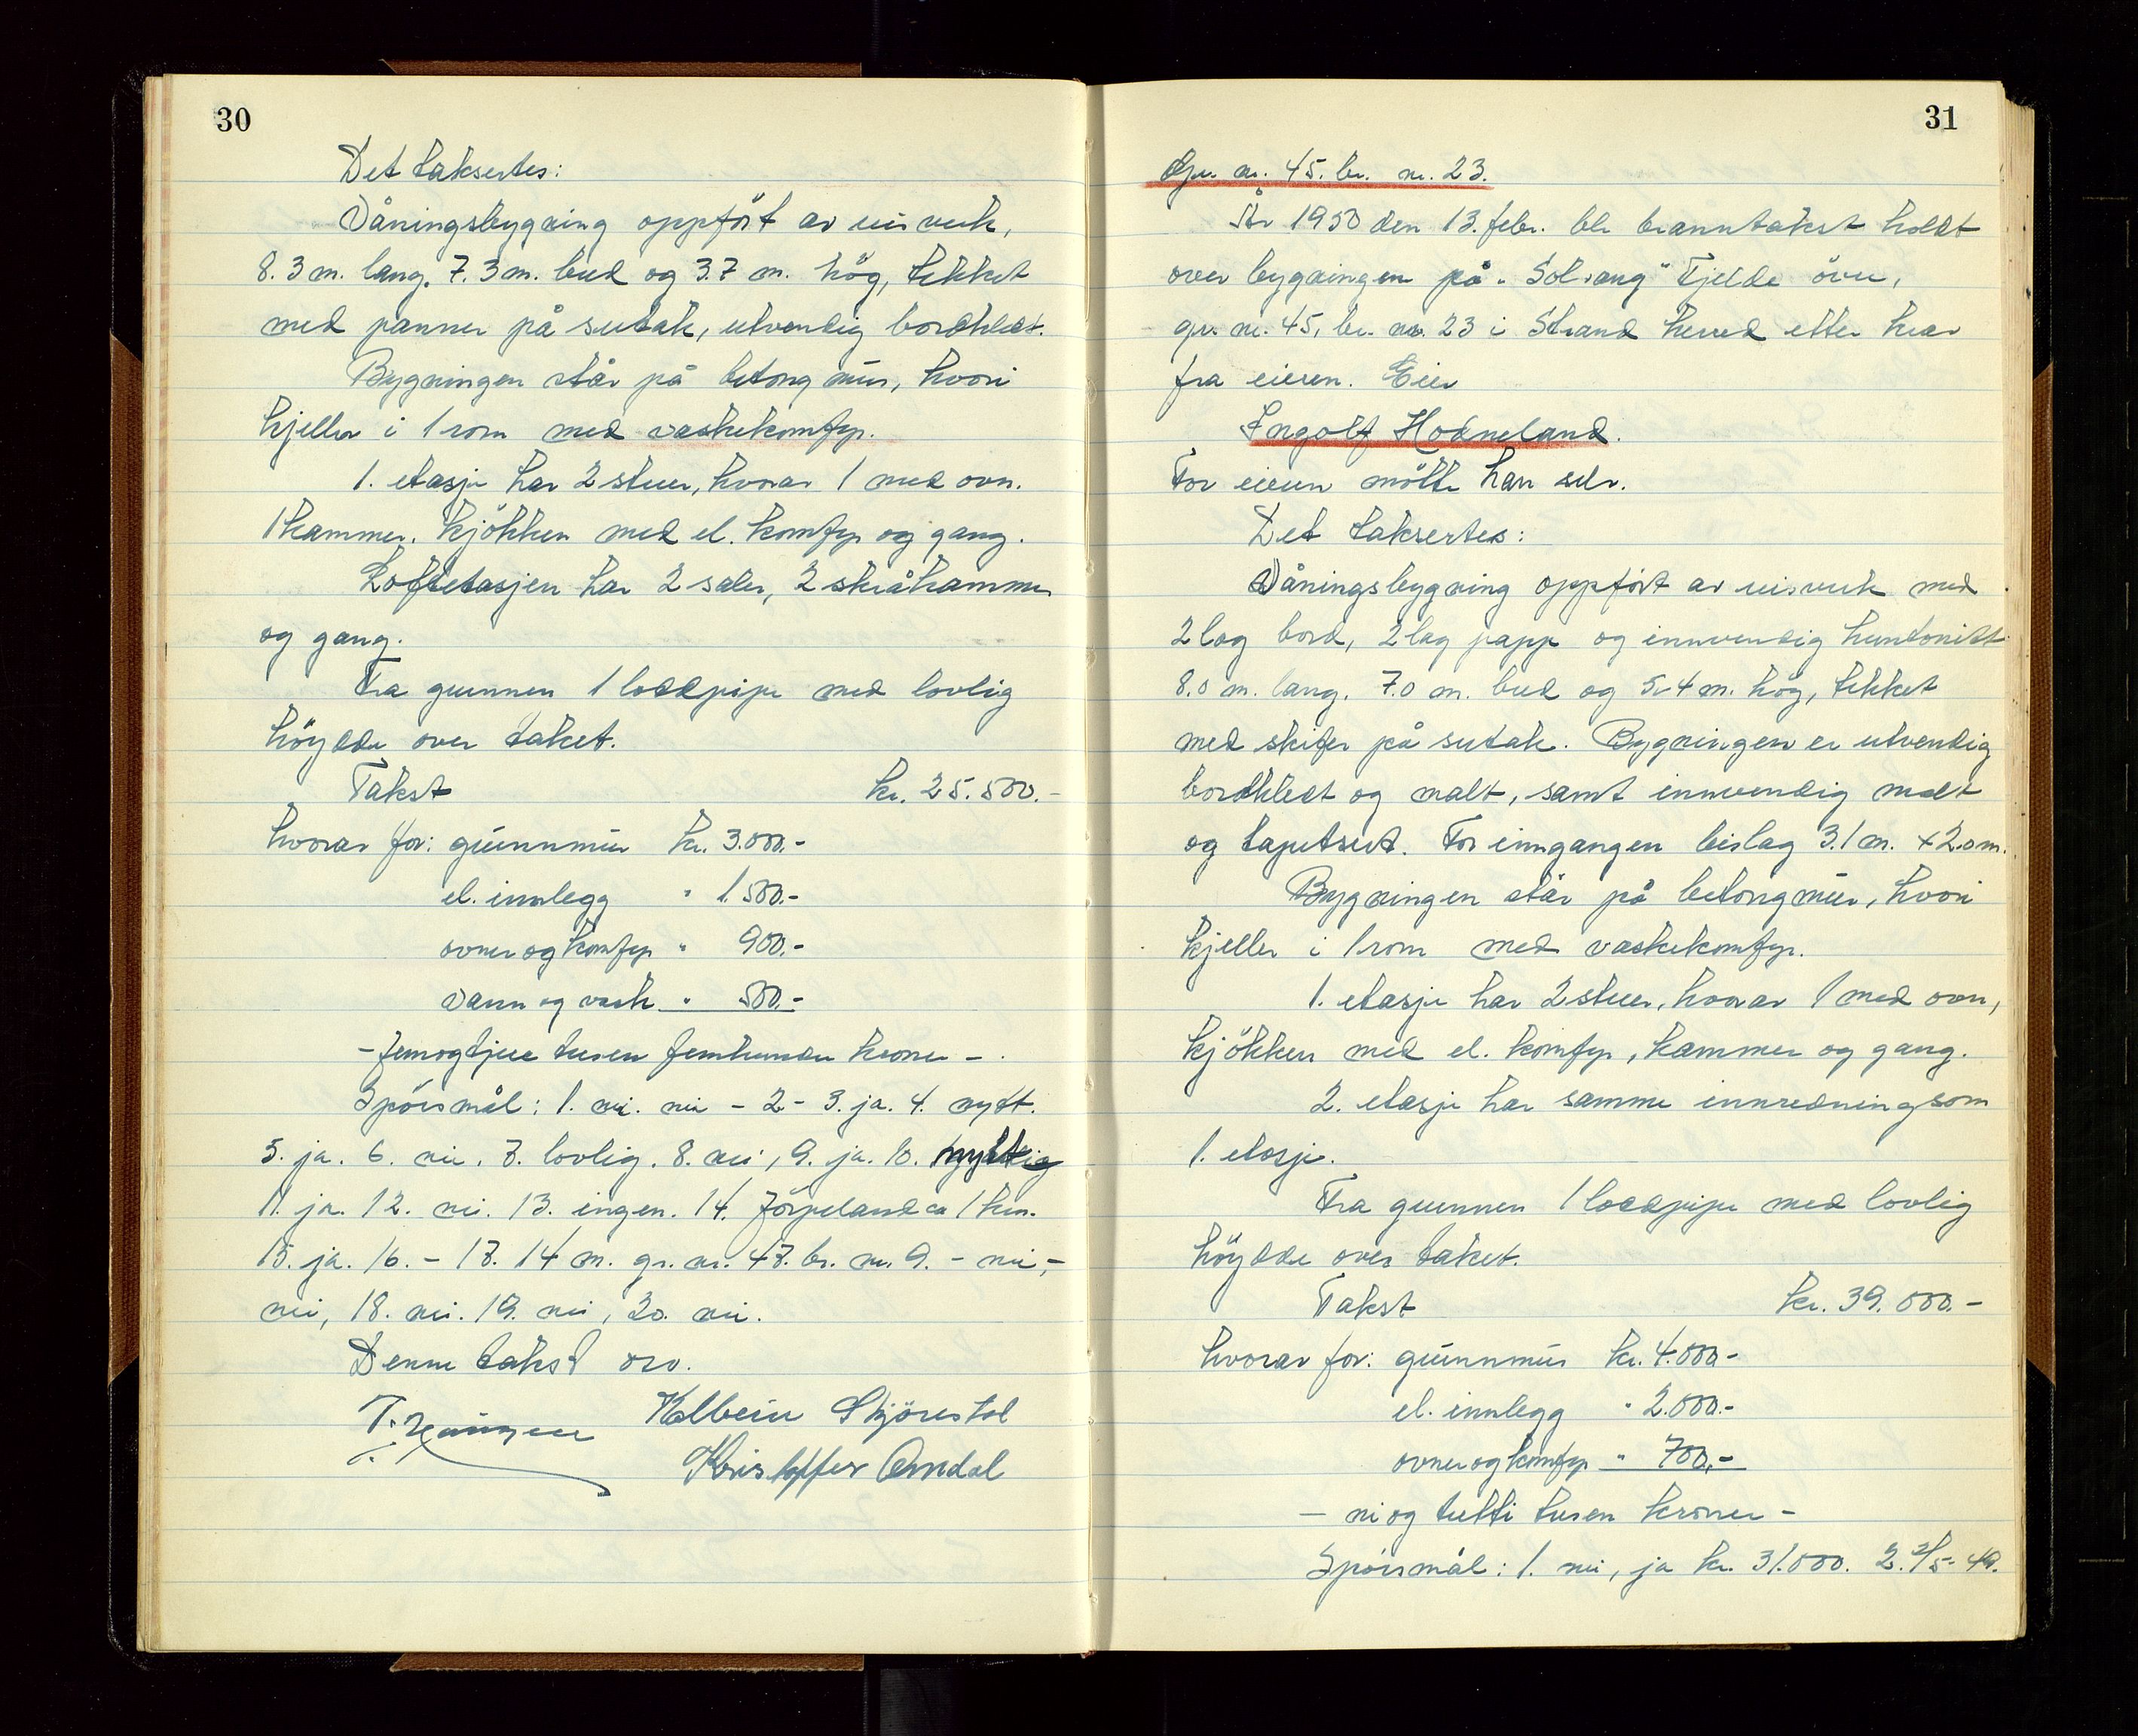 30
Det taksertes:
Våningsbygning oppfört av reisverk,
8.3 m. lang. 7.3 m. bred og 3.7 m. hög, tekket
med panner på sutak, utvendig bordkledt.
Bygningen står på betongmur, hvori
kjeller i 1 rom med vaskekomfyr.
1. etasje har 2 stuer, hvorav 1 med ovn.
1 kammer, kjökken med el. komfyr og gang.
Loftetasjen har 2 saler, 2 skråkammer
og gang.
Fra grunnen 1 loddpipe med lovlig
höydde over taket.
Takst kr. 25.500.-
hvorav for: grunnmur kr. 3.000.-
el. innlegg " 1.500.-
ovner og komfyr " 900.-
vann og vask " 500.-
- femogtjue tusen femhundre kroner -.
Spörsmål: 1. nei. nei - 2 - 3. ja. 4. nytt.
5. ja. 6. nei. 7. lovlig. 8. nei, 9. ja. 10.
11. ja. 12. nei. 13. ingen. 14. Jörpeland ca 1 km.
15. ja. 16. - 17. 14 m. gr. nr. 47. br. nr. 9. - nei,-
nei, 18. nei. 19. nei, 20. nei.
Denne takst osv.
Kolbein Skjörestad
Kristoffer Amdal
31
Gr. nr. 45. br. nr. 23.
År 1950 den 13. febr. ble branntakst holdt
over bygningen på "Solvang" Fjelde övre,
gr. nr. 45, br. nr. 23 i Strand herred etter krav
fra eieren. Eier
Ingolf Hodneland.
For eieren mötte han selv.
Det taksertes:
Våningsbygning oppfört av reisverk med
2 lag bord, 2 lag papp og innvendig huntonitt
8.0 m. lang. 7.0 m. bred og 5.4 m. hög, tekket
med skifer på sutak. Bygningen er utvendig
bordkledt og malt, samt innvendig malt
og tapetsert. For inngangen bislag 3.1 m. x 2.0 m.
Bygningen står på betongmur, hvori
kjeller i 1 rom med vaskekomfyr.
1. etasje har 2 stuer, hvorav 1 med ovn,
kjökken med el. komfyr, kammer og gang.
2. etasje har samme innredning som
1. etasje.
Fra grunnen 1 loddpipe med lovlig
höydde over taket.
Takst kr. 39.000.-
hvorav for: grunnmur kr. 4.000.-
el. innlegg " 2.000.-
ovner og komfyr " 700.-
- ni og tretti tusen kroner -
Spörsmål: 1. nei, ja kr. 31.000. 2. 3/5-49.